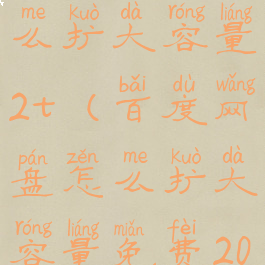 me kuò dà róng liáng
么扩大容量
bǎi dù wǎng
2t(百度网
pán zěn me kuò dà
盘怎么扩大
róng liáng miǎn fèi
容量免费20